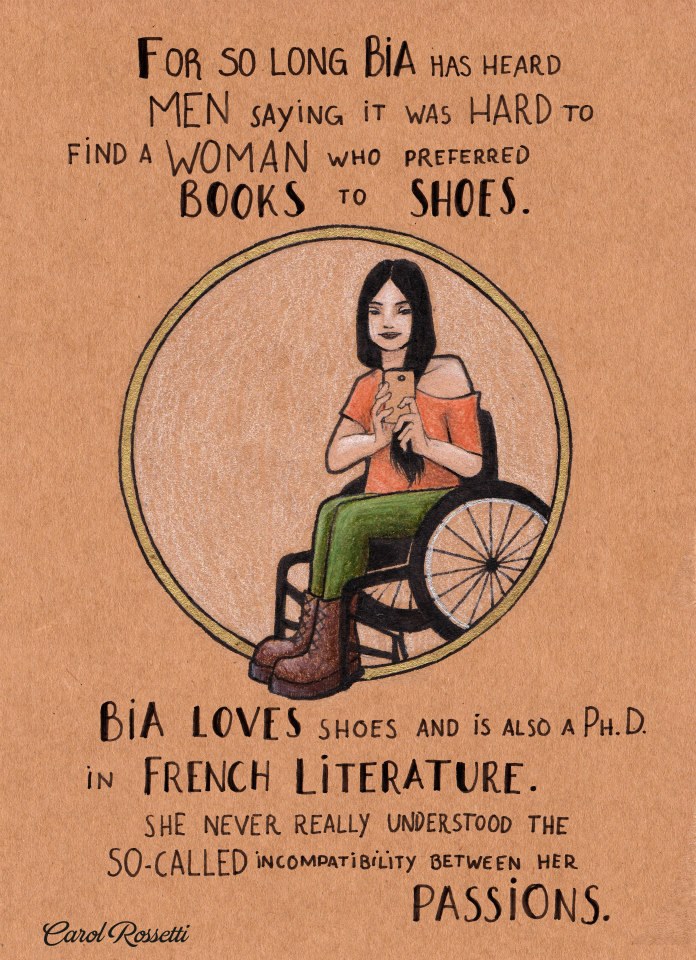 FOR SO LONG BIA HAS HEARD
MEN SAYING IT WAS HARD TO
FIND A WOMAN WHO PREFERRED
BOOKS TO SHOES.
BIA LOVES SHOES AND IS ALSO A PH.D.
IN FRENCH LITERATURE.
SHE NEVER REALLY UNDERSTOOD THE
SO-CALLED INCOMPATIBILITY BETWEEN HER
PASSIONS.
Carol Rossetti